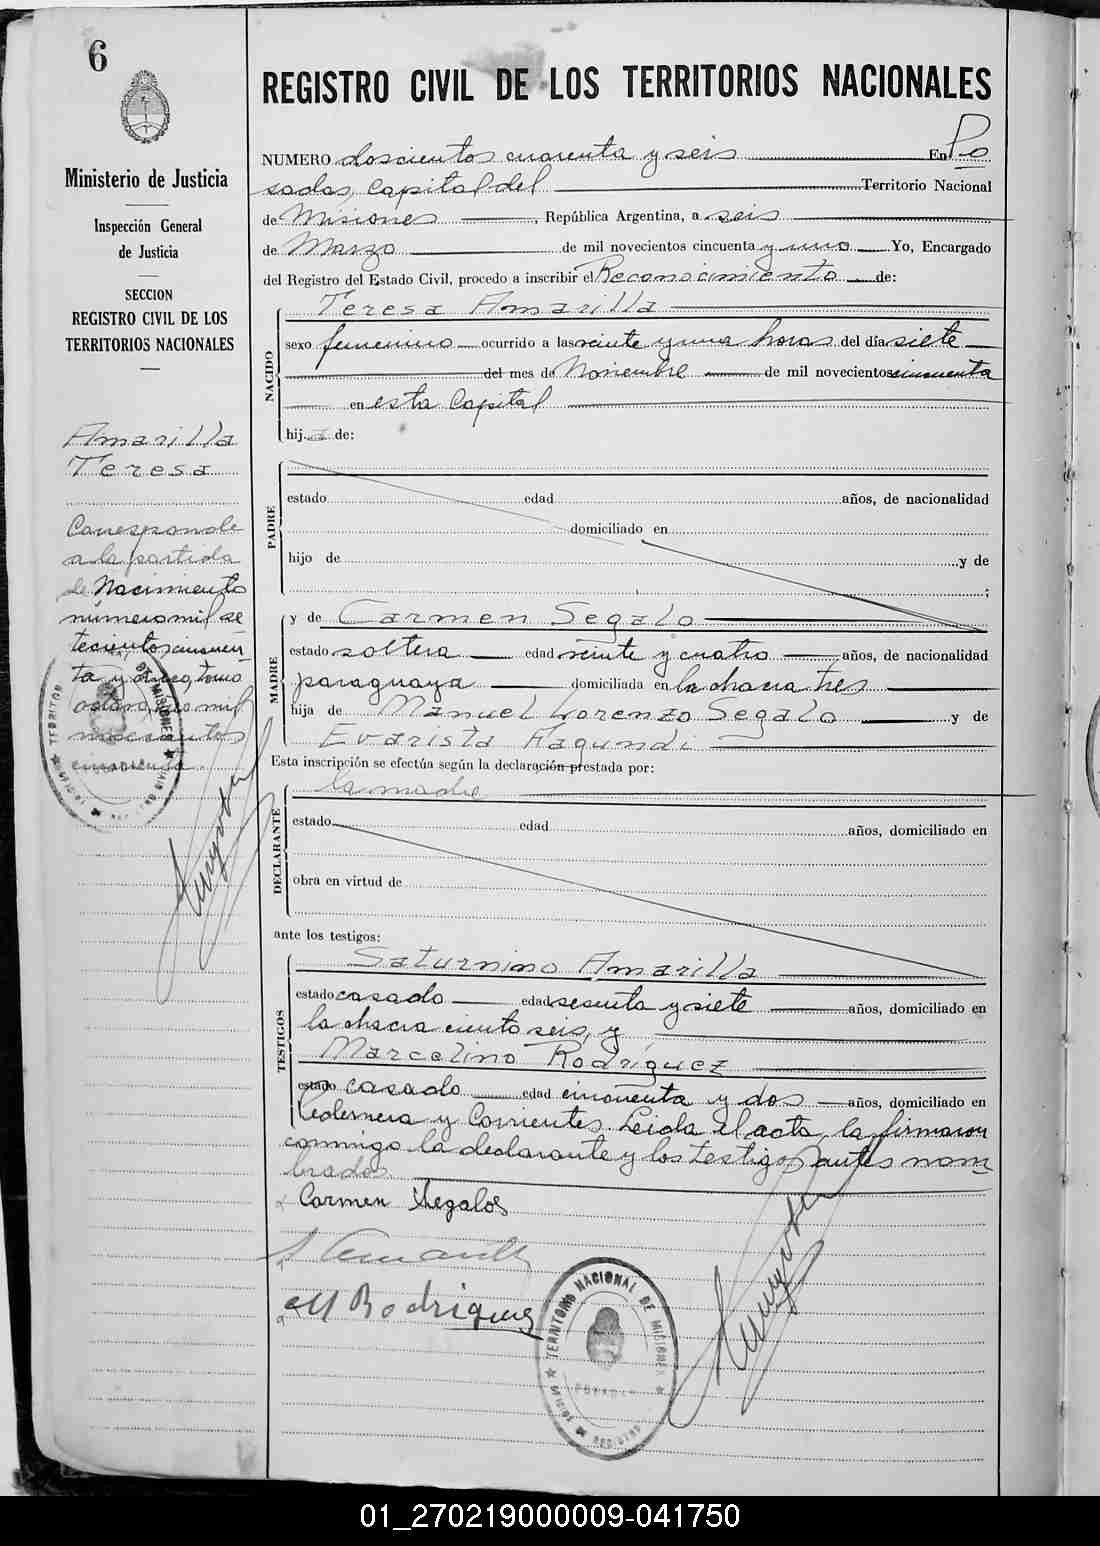 6
REGISTRO CIVIL DE LOS TERRITORIOS NACIONALES
Ministerio de Justicia
Inspección General
de Justicia
SECCION
REGISTRO CIVIL DE LOS
TERRITORIOS NACIONALES
Amarilla
Teresa
Corresponde
a la partida
de Nacimiento
número mil se
tecientos cincuen
ta y cinco, tomo
octavo, año mil
novecientos
cincuenta.
NUMERO doscientos cuarenta y seis En Po
sadas, Capital del Territorio Nacional
de Misiones, República Argentina, a seis
de Marzo de mil novecientos cincuenta y uno Yo, Encargado
del Registro del Estado Civil, procedo a inscribir el Reconocimiento de:
Teresa Amarilla
NACIDO
sexo femenino ocurrido a las veinte y una horas del día siete
del mes de Noviembre de mil novecientos cincuenta
en esta Capital
hija de:
PADRE
estado edad años, de nacionalidad
domiciliado en
hijo de y de
;
y de Carmen Segalo
MADRE
estado soltera edad veinte y cuatro años, de nacionalidad
paraguaya domiciliada en la chacra tres
hija de Manuel Lorenzo Segalo y de
Evarista Fagundi
Esta inscripción se efectúa según la declaración prestada por:
la madre
DECLARANTE
estado edad años, domiciliado en
obra en virtud de
ante los testigos:
TESTIGOS
Saturnino Amarilla
estado casado edad sesenta y siete años, domiciliado en
la chacra ciento seis, y
Marcelino Rodríguez
estado casado edad cincuenta y dos años, domiciliado en
Ledesma y Corrientes. Leida el acta, la firmaron
conmigo la declarante y los testigos antes nom
brados.
Carmen Segalos
S Amarilla
M Rodriguez
TERRITORIO NACIONAL DE MISIONES
POSADAS
OFICINA DE REGISTRO
01_270219000009-041750